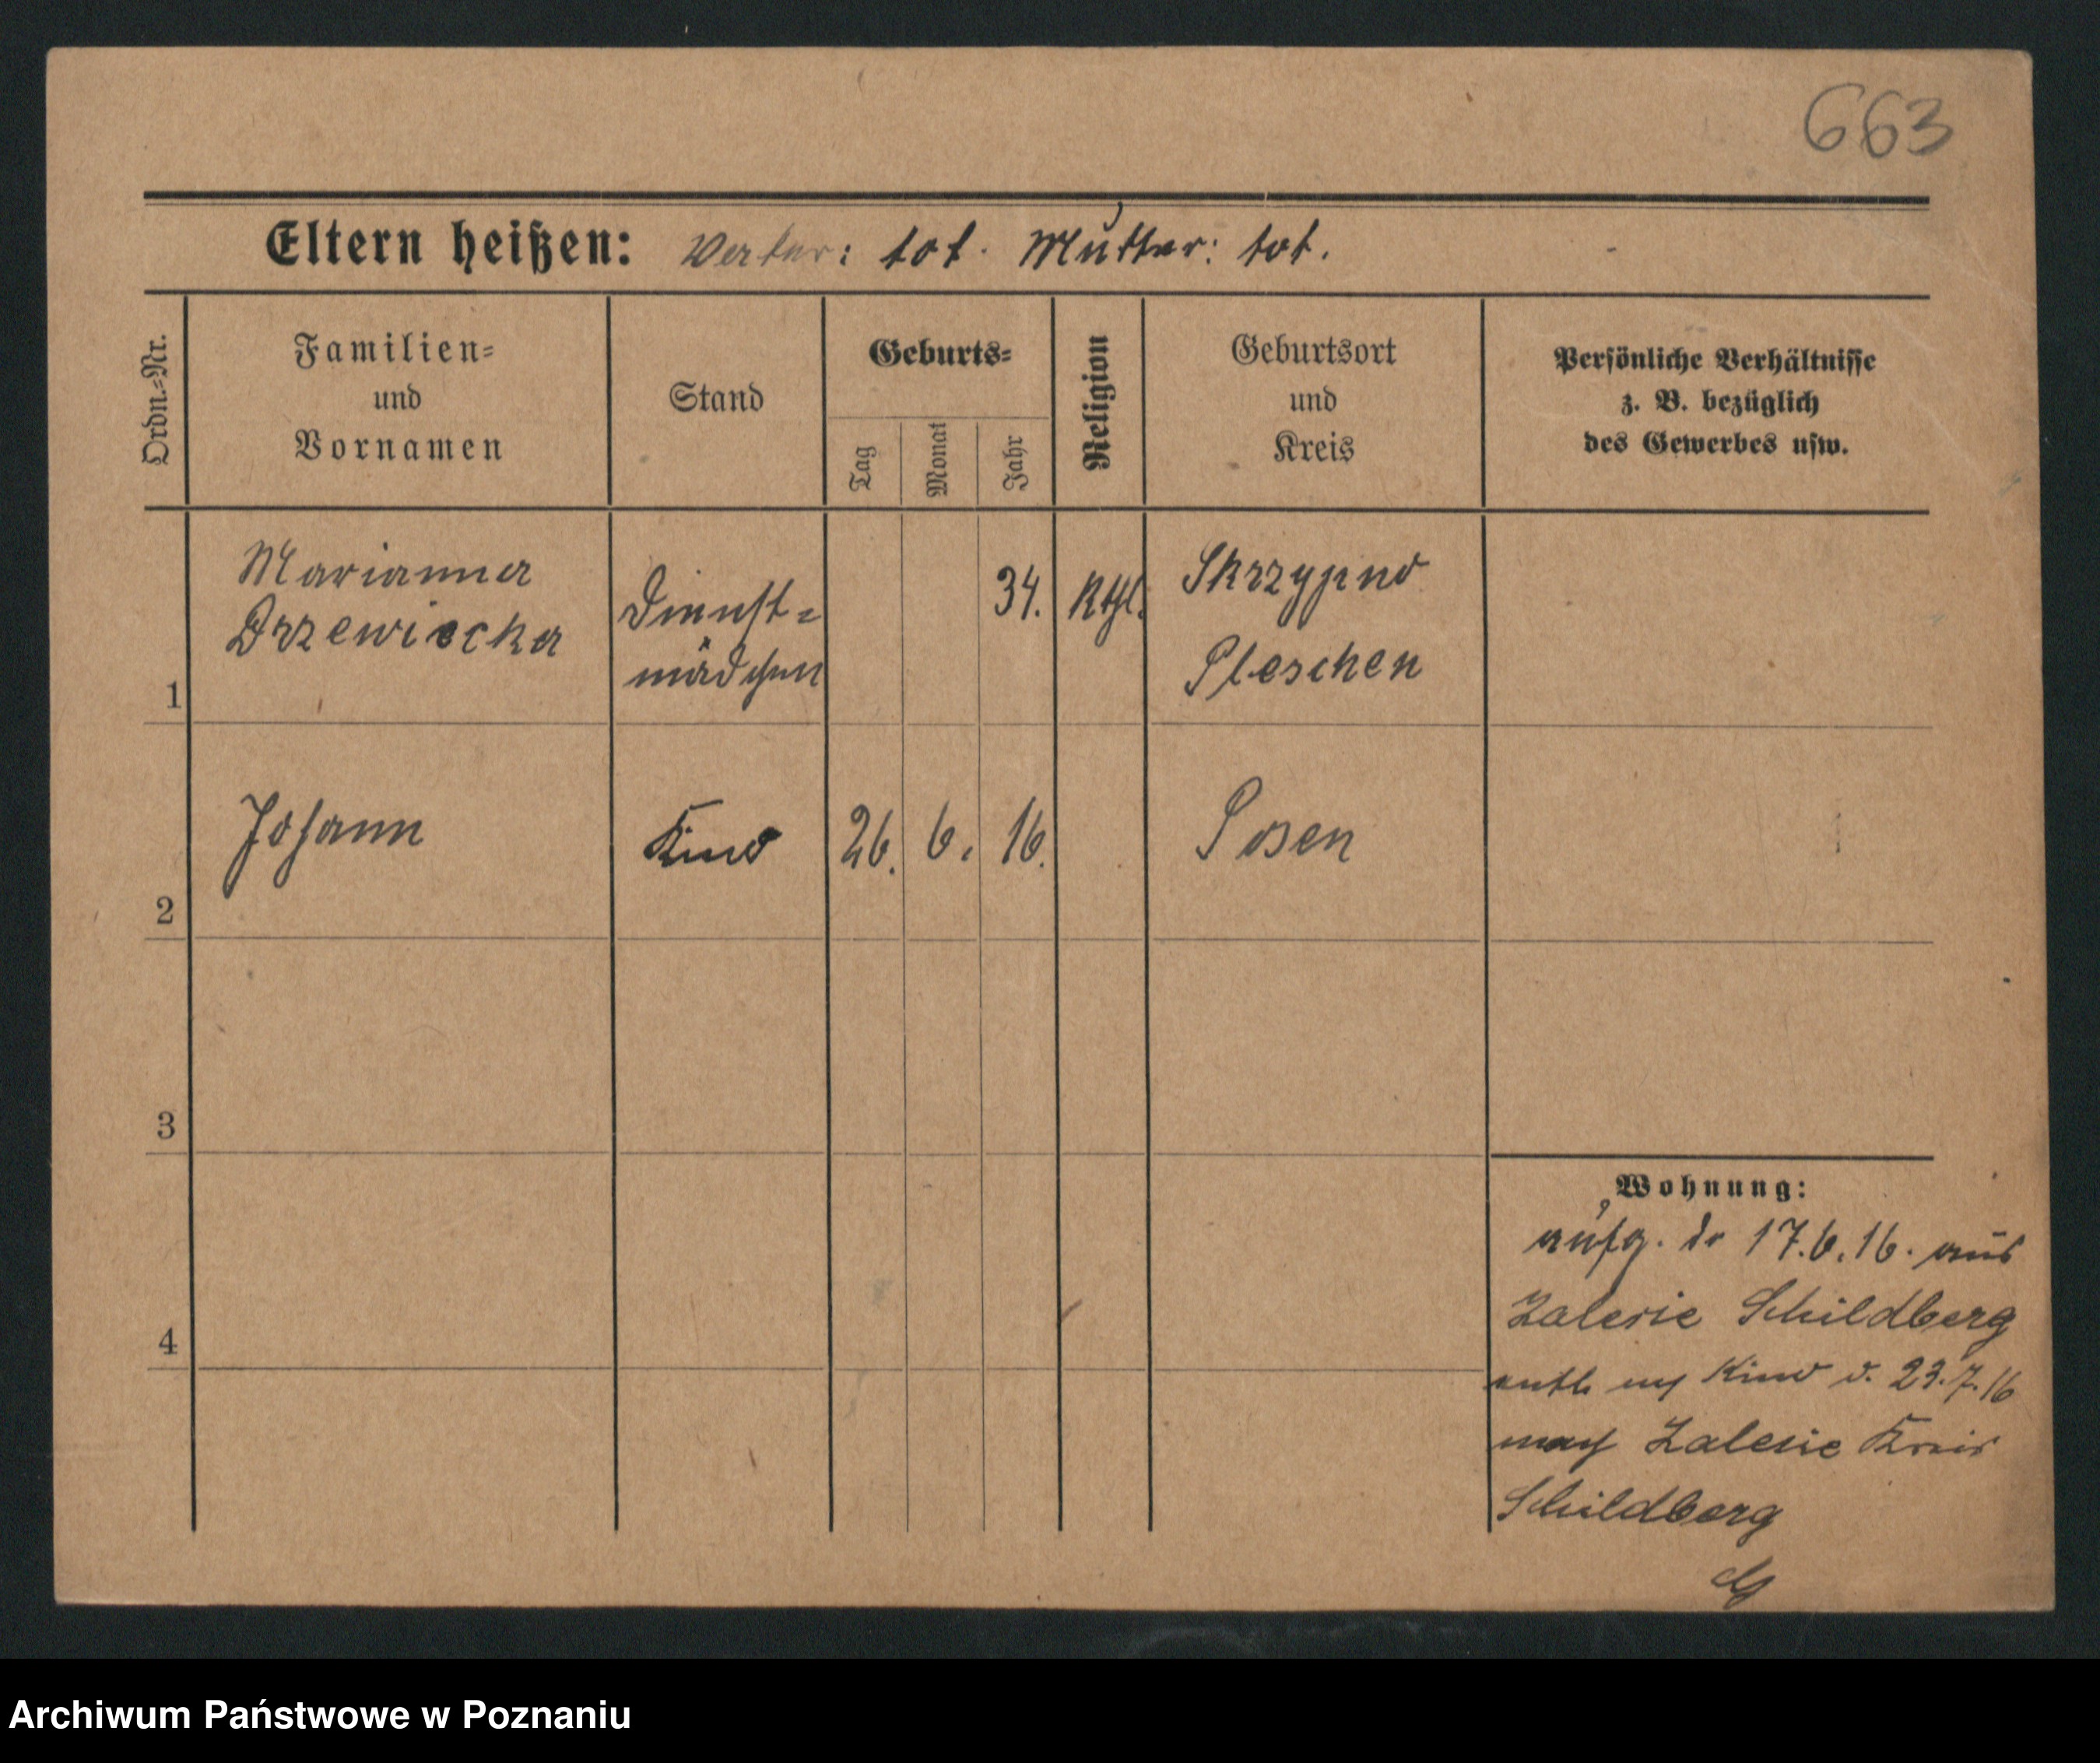 663
Eltern heißen: Vater: tot. Mutter: tot.
Ordn.-Nr.
Familien-
und
Vornamen
Stand
Geburts-
Tag
Monat
Jahr
Religion
Geburtsort
und
Kreis
Persönliche Verhältnisse
z. B. bezüglich
des Gewerbes usw.
1
Marianna
Drzewiecka
Dienst-
mädchen
34.
Kthl.
Skrzypno
Pleschen
2
Johann
Kind
26.
6.
16.
Posen
3
4
Wohnung:
aufg. 17.6.16. aus
Zalesie Schildberg
entl. Kind d. 23.7.16
nach Zalesie Kreis
Schildberg
Archiwum Państwowe w Poznaniu